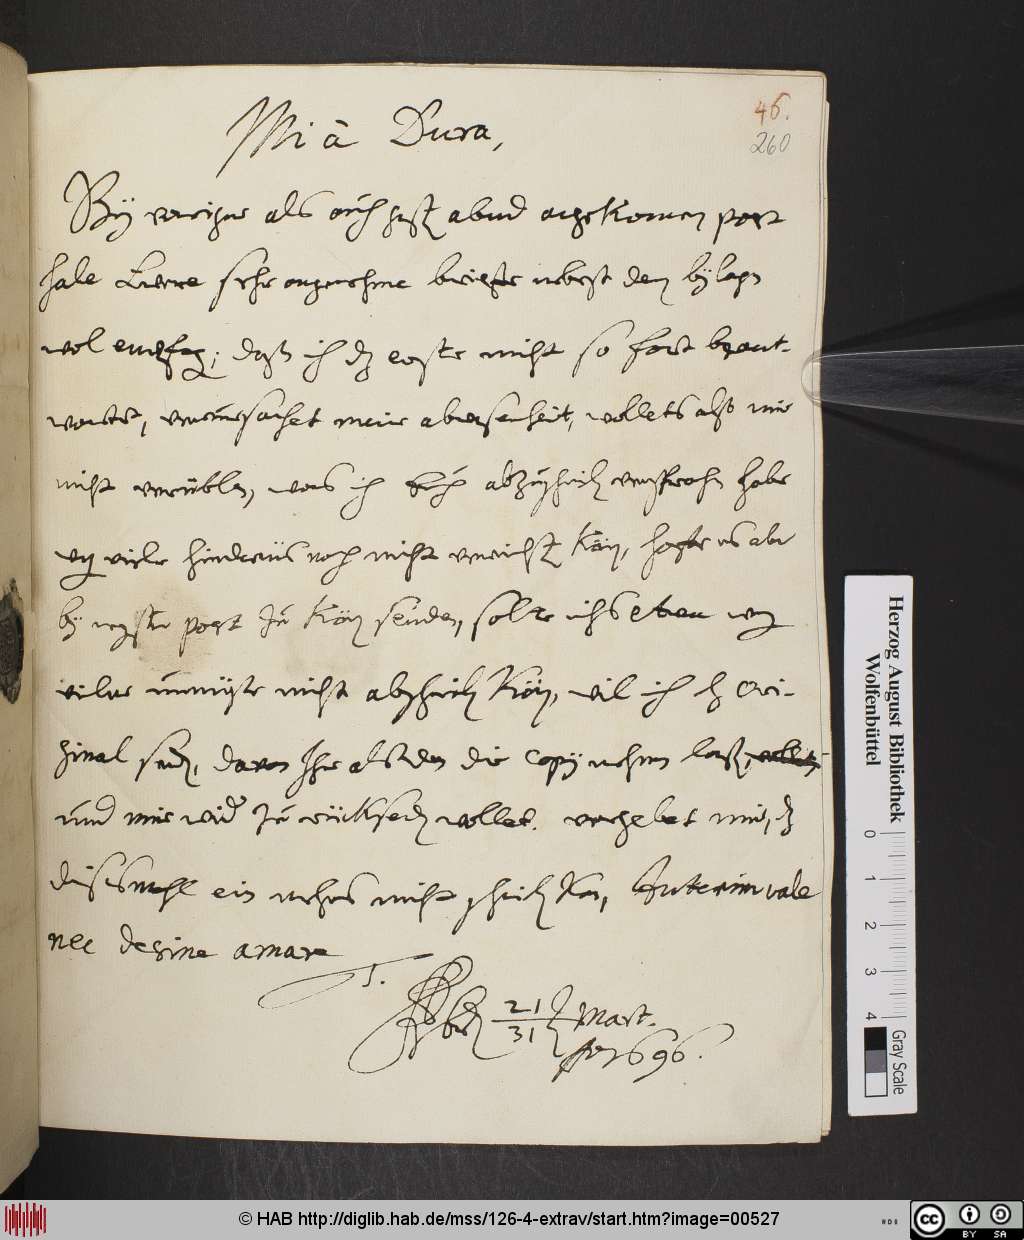 46.
260
Mi à Dura,
Bÿ voriger als auch hest abend angekomen post
habe Euere sehr angenehme briefe nebest den bÿlagen
wol empfag; daß ich die erste nicht so fort beant-
wortet, verursachet meine abwesenheit, wollets also mir
nicht verüblen, was ich Euch abzuschick versprochen habe
weg vieler hindernüs noch nicht verricht Kön, hoffe es aber
bÿ negster post zu Kön senden, solte ichs eben weg
vieler unmüsse nicht abschick Kön, wil ich das ori-
ginal send, davon Ihr alsden die copÿ nehmen last,
und mir wider zu rücksend wollet. vergebet mir, das
diesesmahl ein mehres nicht schick Kan, Interim vale
nec desine amare
T.
21
31 Mart.
1696.
Herzog August Bibliothek
Wolfenbüttel
0 1 2 3 4
Gray Scale
© HAB http://diglib.hab.de/mss/126-4-extrav/start.htm?image=00527
cc BY SA